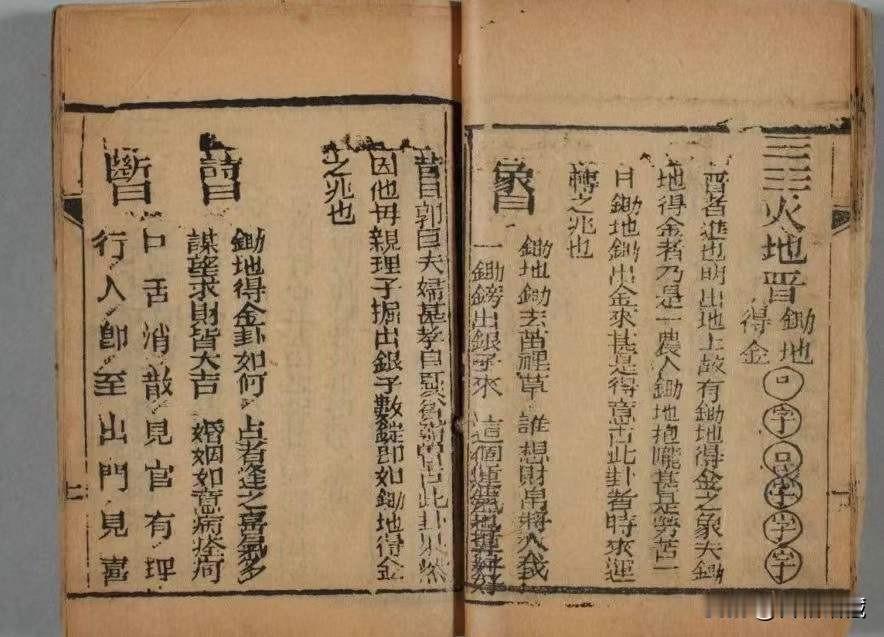 火地晋 鋤地得金 口字口字字字
晋者進也明出地上故有鋤地得金之象夫鋤
地得金者乃是一農人鋤地抱隴甚是勞苦一
日鋤地鋤出金來甚是得意占此卦者時來運
轉之兆也
象曰 鋤地鋤去苗裡草 誰想財帛將人找
一鋤鎊出銀子來 這個運氣也
昔日郭巨夫婦甚孝自 占此卦果然
因他母親理子掘出銀子數錠即如鋤地得金
之兆也
詩曰 鋤地得金卦如何 占者逢之喜氣多
謀望求財皆大吉 婚姻如意病痊
斷曰 口舌消散 見官有理
行人即至 出門見喜